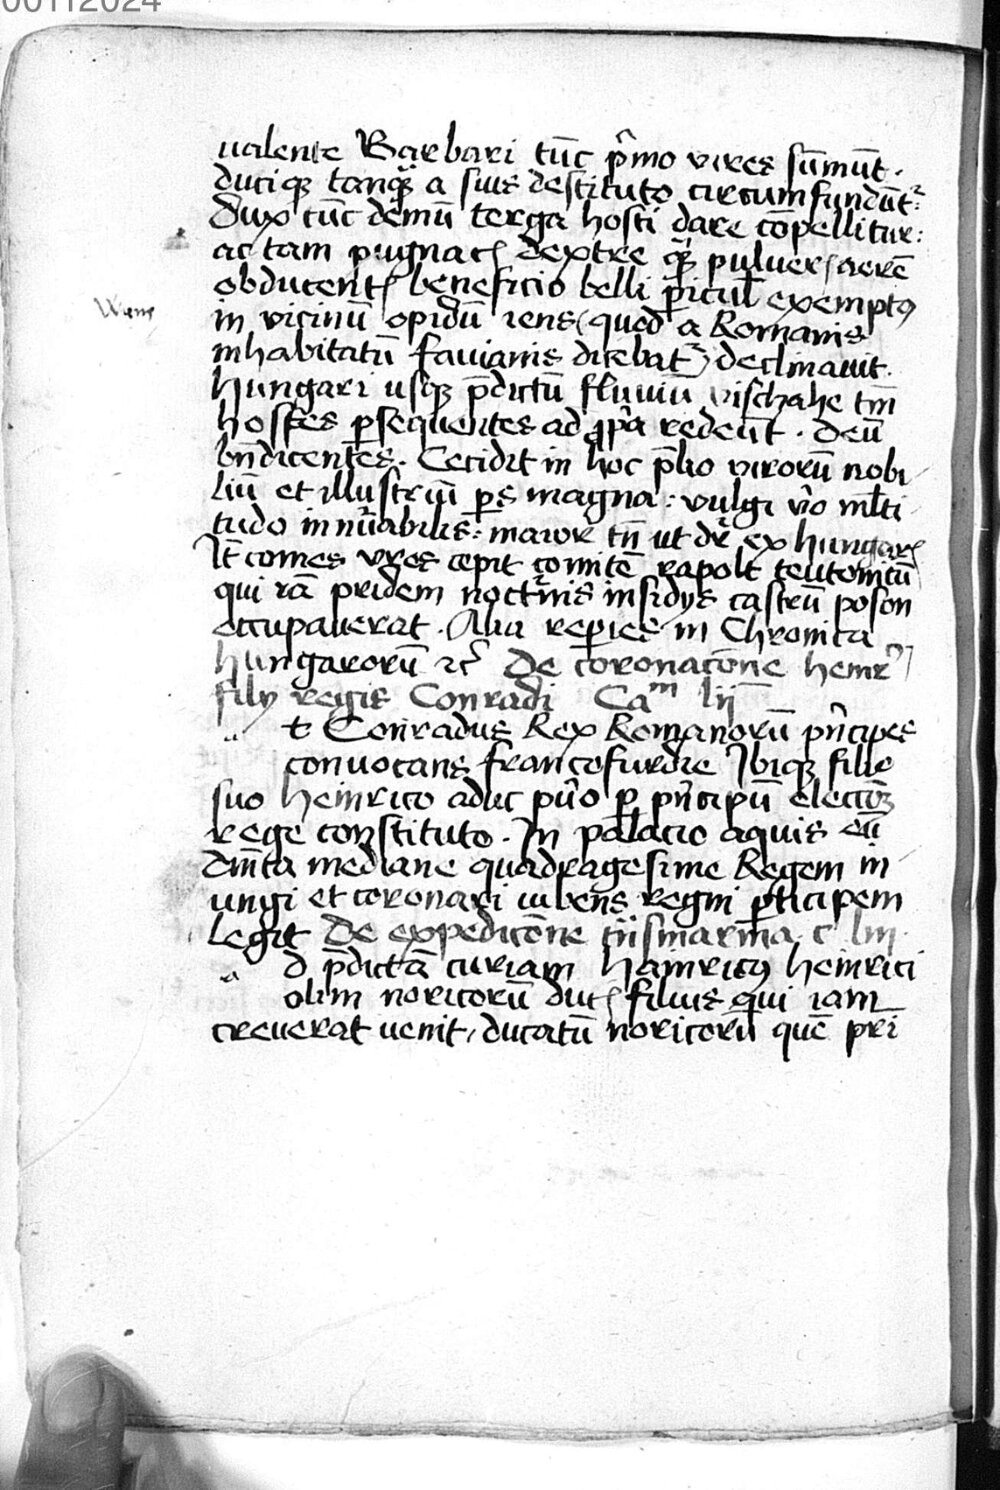 00112024
ualente Barbari tūc p̄mo vires sūmūt.
duciqꝫ tanqȝ a suis destituto circumfundūt᷑:
Dux tūc demū terga hosti dare cōpellitur:
ac tam pugnacꝭ dextre qȝ pulverꝭ aerē
obducentꝭ beneficio belli ꝑicul̄ exemptꝰ
in vicinū opidū iens (quod a Romanis
inhabitatū favianis dicebat᷑) declinavit.
Hungari usqꝫ p̄dictū fluviū vischahe tm̄
hostes ꝑsequentes ad ꝓpͥa redeūt. Deū
bn̄dicentes. Cecidit in hoc p̄lio virorū nobi
liū et illustriū ꝑs magna: vulgi v̄o ml̄ti
tudo innūabilis: maior tn̄ ut dr̄ ex hungarꝭ
It̄ comes vres cepit comitē rapolt teutonicū
qui iā pridem nocturnis insidijs castrū poson
occupauerat. Alia reperies in Chronica
hungarorū ⁊c̄ De coronacōne henr̄
filij regis Conradi Caᵐ lij
t Conradus Rex Romanorū pn̄cipes
convocans francofurdie Ibiqꝫ filie
suo Heinrico aduc pūo ꝑ pn̄cipū electōꝫ
rege constituto. In palacio aquis eū
dm̄ca mediane quadragesime Regem in
ungi et coronari iubens regni ꝑticipem
legit De expedicōne c liij
d p̄dictā curiam Hainricꝰ heinrici
olim noricorū ducꝭ filius qui iam
creuerat uenit, ducatū noricorū quē pri